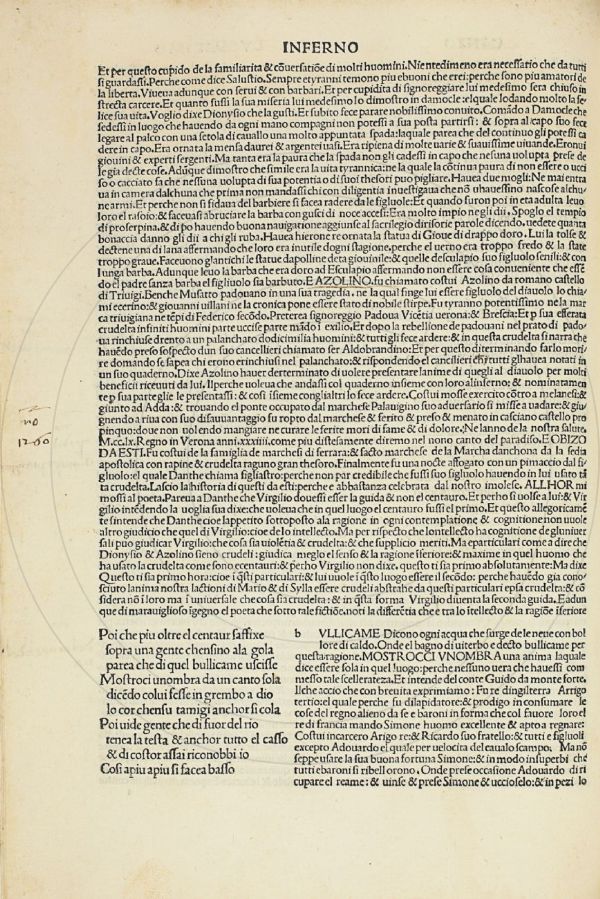 INFERNO
Et per questo cupido de la familiarita & cōuersatiōe di molti huomini. Nientedimeno era necessario che da tutti
si guardassi. Perche come dice Salustio. Sempre e tyranni temono piu e buoni che e rei: perche sono piu amatori de
la liberta. Viueua adunque con serui & con barbari. Et per cupidita di signoreggiare lui medesimo sera chiuso in
strecta carcere. Et quanto fussi la sua miseria lui medesimo lo dimostro in damocle: elquale lodando molto la fe
lice sua uita. Voglio dixe Dionysio che la gusti. Et subito fece parare nobilissimo conuito. Comādo a Damocle che
sedessi in luogo che hauendo da ogni mano compagni non potessi a sua posta partirsi: & sopra al capo suo fece
legare al palco con una setola di cauallo una molto appuntata spada: laquale parea che del continuo gli potessi ca
dere in capo. Era ornata la mensa daurei & argentei uasi. Era ripiena di molte uarie & suauissime uiuande. Eronui
giouini & experti sergenti. Ma tanta era la paura che la spada non gli cadessi in capo che nessuna uolupta prese de
le gia decte cose. Adūque dimostro che simile era la uita tyrannica: ne la quale la cōtinua paura di non essere o ucci
so o cacciato fa che nessuna uolupta di sua potentia o di suoi thesori puo pigliare. Hauea due mogli: Ne mai entra
ua in camera dalchuna che prima non mandassi chi con diligentia inuestigaua che nō uhauessino nascose alchu
ne armi. Et perche non si fidaua del barbiere si facea radere da le figluole: Et quando furon poi in eta adulta leuo
loro el rasoio: & faceuasi abruciare la barba con gusci di noce accesi. Era molto impio negli dii. Spoglo el tempio
di proserpina, & dipoi hauendo buona nauigatione aggiunse al sacrilegio dirisorie parole dicendo, uedete quanta
bonaccia danno gli dii a chi gli ruba. Hauea hierone re ornata la statua di Gioue di drappo doro. Lui la tolse &
dectene una di lana affermando che loro era inutile dogni stagione, perche el uerno era troppo fredo & la state
troppo graue. Faceuono glantichi le statue dapolline de ta giouinile: & quelle desculapio suo figluolo senili: & con
lunga barba. Adunque leuo la barba che era doro ad Esculapio affermando non essere cosa conueniente che essē
do el padre sanza barba el figluolo sia barbuto. E AZOLINO. fu chiamato costui Azolino da romano castello
di Triuigi. Benche Musatto padouano in una sua tragedia, ne la qual finge lui essere figluolo del diauolo lo chia
mi ecerino: & giouanni uillani ne la cronica pone essere stato di nobile stirpe. Fu tyranno potentissimo ne la mar
ca triuigiana ne tēpi di Federico secōdo. Preterea signoreggio Padoua Vicētia uerona: & Brescia: Et p sua efferata
crudelta infiniti huomini parte uccise parte mādo i exilio. Et dopo la rebellione de padouani nel prato di pado/
ua rinchiuse drento a un palanchato dodicimila huomini: & tutti gli fece ardere: & in questa crudelta si narra che
hauēdo preso sospecto dun suo cancellieri chiamato ser Aldobrandino: Et per questo diterminando farlo mori/
re domando se sapea chi erono rinchiusi nel palanchato: & rispondendo el cancellieri chi tutti glhauea notati in
un suo quaderno. Dixe Azolino hauer determinato di uolere presentare lanime di quegli al diauolo per molti
beneficii riceuuti da lui. Il perche uolea che andassi col quaderno insieme con loro alinferno: & nominatamen
te p sua parte glie le presentassi: & cosi isieme congli altri lo fece ardere. Costui mosse exercito cōtro a melanesi: &
giunto ad Adda: & trouando el ponte occupato dal marchese Palauigino suo aduersario si misse a uadare: & giu
gnendo a riua con suo disauantaggio fu ropto dal marchese & ferito & preso & menato in casciano castello pro
pinquo doue non uolendo mangiare ne curare le ferite mori di fame & di dolore, Ne lanno de la nostra salute
M.cc.lx. Regno in Verona anni .xxxiiii. come piu distesamente diremo nel nono canto del paradiso. E OBIZO
DAESTI. Fu costui de la famiglia de marchesi di ferrara: & facto marchese de la Marcha danchona da la sedia
apostolica con rapine & crudelta raguno gran thesoro. Finalmente fu una nocte affogato con un pimaccio dal fi/
gluolo: el quale Danthe chiama figliastro: perche non par credibile che fussi suo figluolo hauendo in lui usato tā
ta crudelta. Lascio la historia di questi da esti: perche e abbastanza celebrata dal nostro imolese. ALLHOR mi
mossi al poeta. Pareua a Danthe che Virgilio douessi esser la guida & non el centauro. Et perho si uolse a lui: & Vir
gilio intēdendo la uoglia sua dixe: che uoleua che in quel luogo el centauro fussi el primo. Et questo allegoricamē
te sintende che Danthe cioe lappetito sottoposto ala ragione in ogni contemplatione & cognitione non uuole
altro giudicio che quel di Virgilio: cioe de lo intellecto. Ma per rispecto che lontellecto ha cognitione degluniuer
sali puo giudicar Virgilio: che cosa sia uiolētia & crudelta: & che supplicio meriti. Ma e particulari come a dire che
Dionysio & Azolino sieno crudeli: giudica meglo el senso & la ragione iferiore: & maxime in quel huomo che
ha usato la crudelta come sono e centauri: & perho Virgilio non dixe, questo ti sia primo absolutamente: Ma dixe
Questo ti sia primo hora: cioe i q̄sti particulari: & lui uuole i q̄sto luogo essere il secōdo: perche hauēdo gia cono/
sciuto lanima nostra lactioni di Mario & di Sylla essere crudeli abstrahe da questi particulari epsa crudelta: & cō
sidera nō i loro ma i uniuersale che cosa sia crudelta: & in q̄sta forma Virgilio diuenta la seconda guida. E adun
que di marauiglioso īgegno el poeta che sotto tale fictiōe, noti la differētia che e tra lo itellecto & la ragiōe iferiore
Poi che piu oltre el centaur saffixe
sopra una gente chensino ala gola
parea che di quel bullicame uscisse
Mostroci unombra da un canto sola
dicēdo colui fesse in grembo a dio
lo cor chensu tamigi anchor si cola
Poi uide gente che di fuor del rio
tenea la testa & anchor tutto el casso
& di costor assai riconobbi io
Cosi apiu apiu si facea basso
b VLLICAME Dicono ogni acqua che surge de le uene con bol
lore di caldo. Onde el bagno di uiterbo e decto bullicame per
questa ragione. MOSTROCCI VNOMBRA A una anima laquale
dice essere sola in quel luogo: perche nessuno uera che hauessi com
messo tale scelleratezza, Et intende del conte Guido da monte forte.
Ilche accio che con breuita exprimiamo: Fu re dingilterra Arrigo
tertio: el quale perche fu dilapidatore: & prodigo in consumare le
cose del regno alieno da se e baroni in forma che col fauore loro el
re di francia mando Simone huomo excellente & apto a regnare:
Costui incarcero Arigo re: & Ricardo suo fratello: & tutti e figluoli
excepto Adouardo el quale per uelocita del cauallo scampo. Ma nō
seppe usare la sua buona fortuna Simone: & in modo insuperbi che
tutti e baroni si ribellorono. Onde prese occasione Adouardo di ri
cuperare el reame: & uinse & prese Simone & ucciselo: & in pezi lo
1260